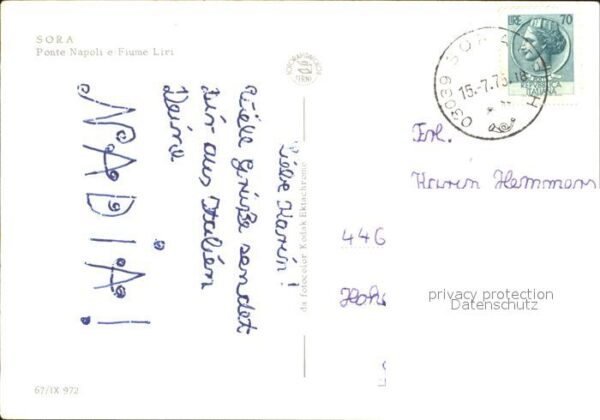 SORA
Ponte Napoli e Fiume Liri
LIRE 70
ITALIANA
03039 SORA
15.-7.76.-18
Liebe Karin!
Viele Grüße sendet
Dir aus Italien
Deine
NADIA!
da fotocolor Kodak Ektachrome
Frl.
Karin Hemmers
446
Hoh
privacy protection
Datenschutz
67/IX 972